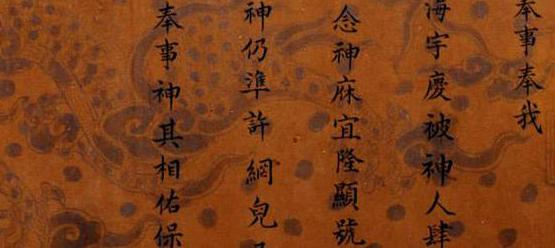 奉事奉我
海宇慶被神人肆
念神庥宜隆顯號
神仍準許網皃
奉事神其相佑保